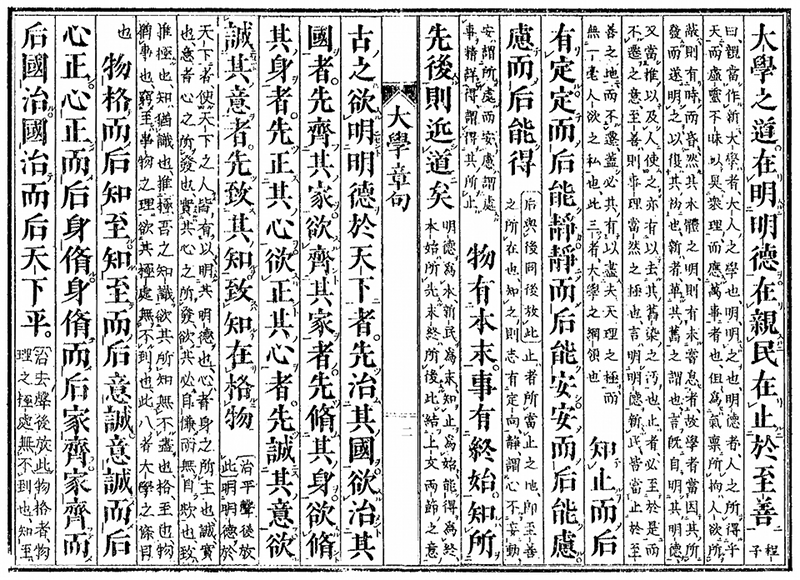 大學之道在明明德在親民在止於至善
程子
曰親當作新大學者大人之學也明明之也明德者人之所得乎
天而虛靈不昧以具衆理而應萬事者也但爲氣稟所拘人欲所
蔽則有時而昏然其本體之明則有未嘗息者故學者當因其所
發而遂明之以復其初也新者革其舊之謂也言既自明其明德
又當推以及人使之亦有以去其舊染之汚也止者必至於是而
不遷之意至善則事理當然之極也言明明德新民皆當止於至
善之地而不遷蓋必其有以盡夫天理之極而
無一毫人欲之私也此三者大學之綱領也
知止而后
有定定而后能靜靜而后能安安而后能慮
慮而后能得
后與後同後放此止者所當止之地即至善
之所在也知之則志有定向靜謂心不妄動
安謂所處而安慮謂處
事精詳得謂得其所止
物有本末事有終始知所
先後則近道矣
明德爲本新民爲末知止爲始能得爲終
本始所先末終所後此結上文兩節之意
大學章句
二
古之欲明明德於天下者先治其國欲治其
國者先齊其家欲齊其家者先脩其身欲脩
其身者先正其心欲正其心者先誠其意欲
誠其意者先致其知致知在格物
治平聲後放
此明明德於
天下者使天下之人皆有以明其明德也心者身之所主也誠實
也意者心之所發也實其心之所發欲其必自慊而無自欺也致
推極也知猶識也推極吾之知識欲其所知無不盡也格至也物
猶事也窮至事物之理欲其極處無不到也此八者大學之條目
也
物格而后知至知至而后意誠意誠而后
心正心正而后身脩身脩而后家齊家齊而
后國治國治而后天下平。
治去聲後放此物格者物
理之極處無不到也知至